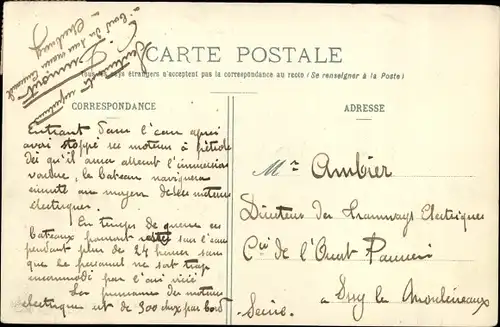 à bord du sous marin Emeraude
à Cherbourg
CARTE POSTALE
Tous les pays étrangers n'acceptent pas la correspondance au recto (Se renseigner à la Poste)
CORRESPONDANCE
ADRESSE
Entrant dans l'eau après
avoir stoppé ses moteurs à pétrole
Dès qu'il aura atteint l'immersion
voulue, le bateau naviguera
ensuite au moyen de ses moteurs
électriques.
En temps de guerre ces
bateaux peuvent rester sous l'eau
pendant plus de 24 heures sans
que le personnel ne soit trop
incommodé par l'air vicié
La puissance des moteurs
électriques est de 300 chx par bord
Mr Ambier
Directeur des Tramways Electriques
Cie de l'Ouest Parisien
à Issy les Moulineaux
Seine.